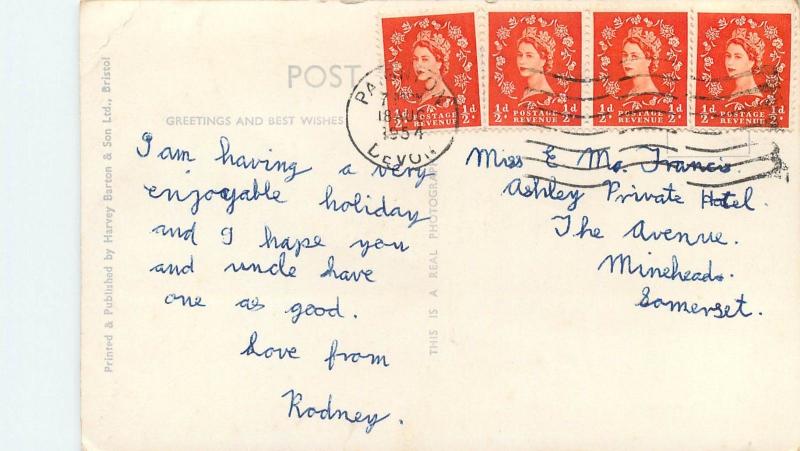 POST
GREETINGS AND BEST WISHES
I am having a very
enjoyable holiday
and I hope you
and uncle have
one as good.
Love from
Rodney.
Printed & Published by Harvey Barton & Son Ltd., Bristol
THIS IS A REAL PHOTOGRAP
½d POSTAGE REVENUE ½d
½d POSTAGE REVENUE ½d
½d POSTAGE REVENUE ½d
½d POSTAGE REVENUE ½d
PAIGNTON
18
1954
DEVON
Miss E Francis.
Ashley Private Hotel.
The Avenue.
Minehead.
Somerset.